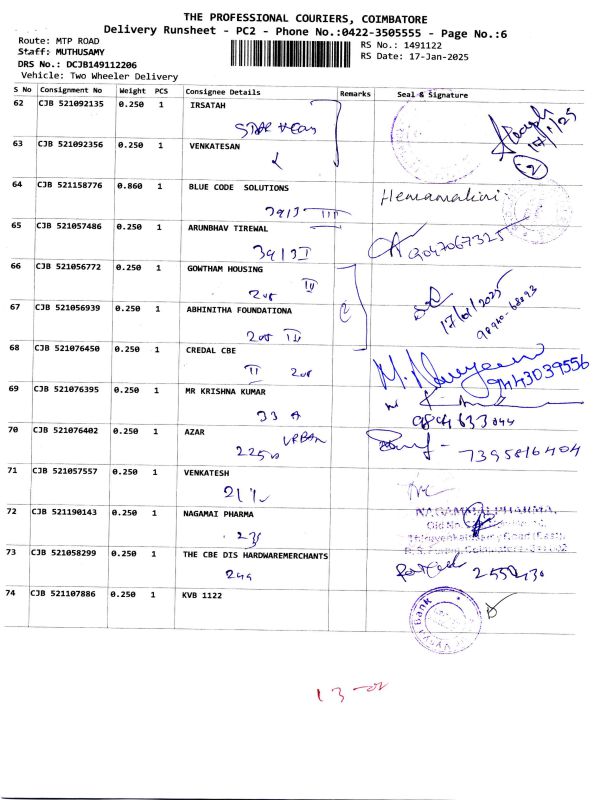 THE PROFESSIONAL COURIERS, COIMBATORE
Delivery Runsheet - PC2 - Phone No.:0422-3505555 - Page No.:6
Route: MTP ROAD
RS No.: 1491122
Staff: MUTHUSAMY
RS Date: 17-Jan-2025
DRS No.: DCJB149112206
Vehicle: Two Wheeler Delivery
S No Consignment No Weight PCS Consignee Details Remarks Seal & Signature
62 CJB 521092135 0.250 1 IRSATAH
17/1/25
63 CJB 521092356 0.250 1 VENKATESAN
2
64 CJB 521158776 0.860 1 BLUE CODE SOLUTIONS
Hemamalini
39/3 III
65 CJB 521057486 0.250 1 ARUNBHAV TIREWAL
9047067325
39/3 I
66 CJB 521056772 0.250 1 GOWTHAM HOUSING
208 IV
17/01/2025
67 CJB 521056939 0.250 1 ABHINITHA FOUNDATIONA
208
68 CJB 521076450 0.250 1 CREDAL CBE
II 208
9443039556
69 CJB 521076395 0.250 1 MR KRISHNA KUMAR
33 A
70 CJB 521076402 0.250 1 AZAR
URBAN
7395816404
71 CJB 521057557 0.250 1 VENKATESH
72 CJB 521190143 0.250 1 NAGAMAI PHARMA
NAGAMAI PHARMA,
73 CJB 521058299 0.250 1 THE CBE DIS HARDWAREMERCHANTS
244
74 CJB 521107886 0.250 1 KVB 1122
Vysya Bank
13